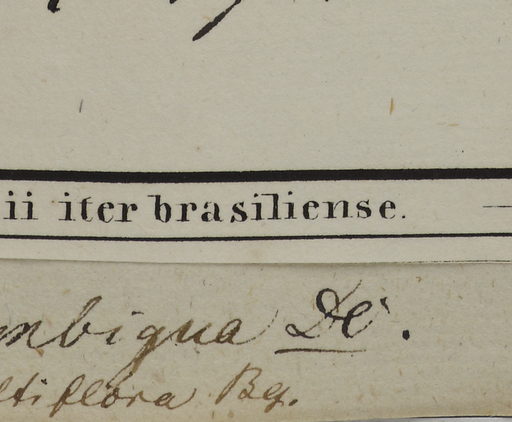 ii iter brasiliense.
mbigua DC.
ltiflora Bg.